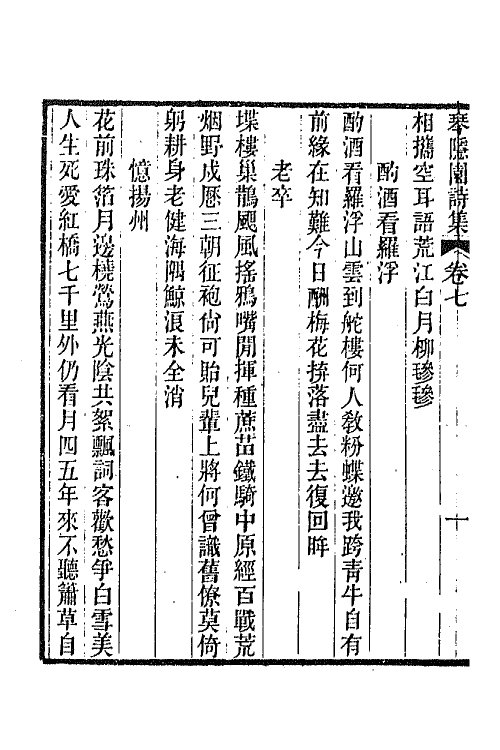 琴隱園詩集 卷七 十
相攜空耳語荒江白月柳毿毿
酌酒看羅浮
酌酒看羅浮山雲到舵樓何人教粉蝶邀我跨青牛自有
前緣在知難今日酬梅花拚落盡去去復回眸
老卒
堞樓巢鵲颶風搖鴉嘴閒揮種蔗苗鐵騎中原經百戰荒
烟野戍歷三朝征袍尙可貽兒輩上將何曾識舊僚莫倚
躬耕身老健海隅鯨浪未全消
憶揚州
花前珠箔月邊橈鶯燕光陰共絮飄詞客歡愁爭白雪美
人生死愛紅橋七千里外仍看月四五年來不聽簫草自